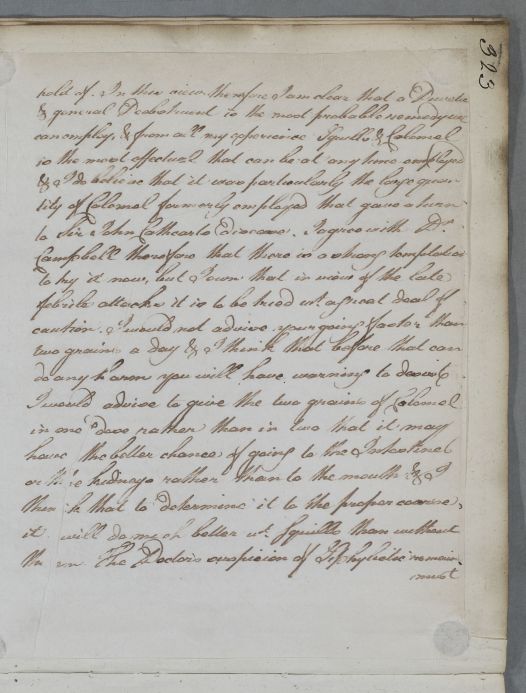 323
hold of. In this view therefore I am clear that a Diuretic
& general Deobstruent is the most probable remedy we
can employ, & from all my experience Squills & Calomel
is the most effectual that can be at any time employed
& I do believe that it was particularly the large quan-
tity of Calomel formerly employed that gave a turn
to Sir John Cathcarts disease. I agree with Dr.
Campbell therefore that there is a strong temptation
to try it now, but I own that in view of the late
febrile attacks it is to be tried wt. a great deal of
caution. I would not advise your going faster than
two grains a day & I think that before that can
do any harm you will have warning to desist
I would advise to give the two grains of Calomel
in one dose rather than in two that it may
have the better chance of going to the Intestines
or the kidneys rather than to the mouth & I
think that to determine it to the proper course,
it will do much better wt. Squills than without
them. The Doctors suspicion of Syphylitic remains
must